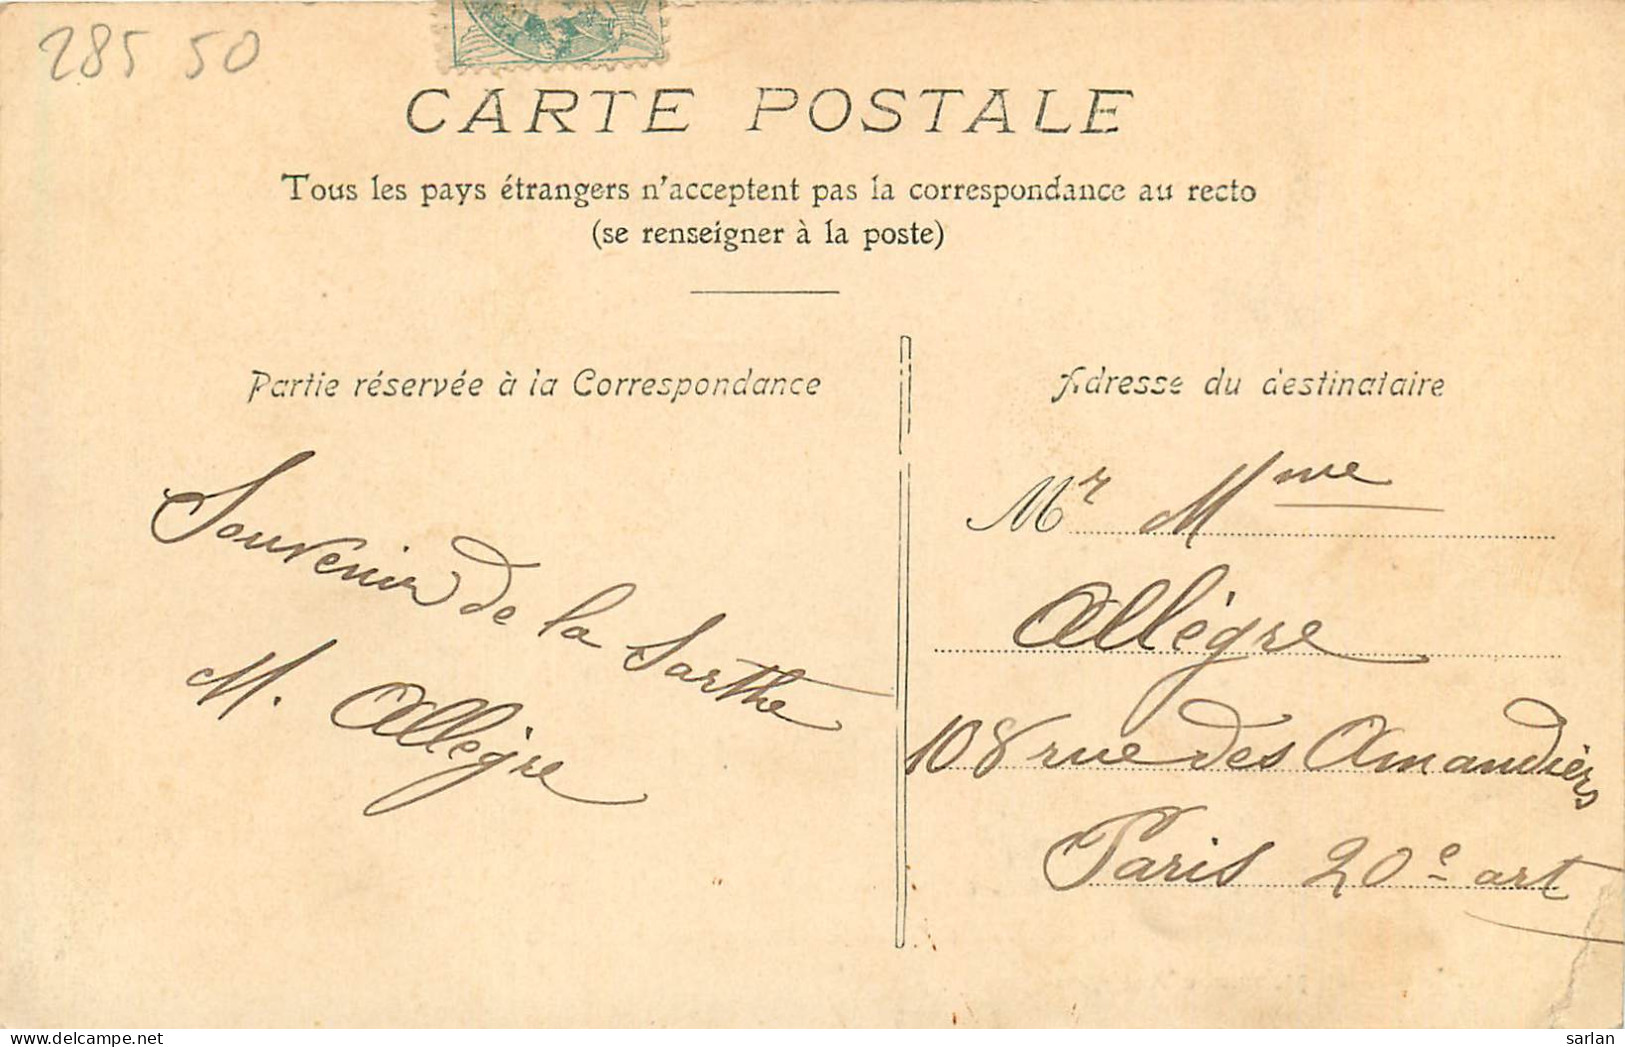 285 50
CARTE POSTALE
Tous les pays étrangers n'acceptent pas la correspondance au recto
(se renseigner à la poste)
Partie réservée à la Correspondance
Souvenir de la Sarthe
M. Allègre
Adresse du destinataire
Mr Mme
Allègre
108 rue des Amandiers
Paris 20e art
sarlan